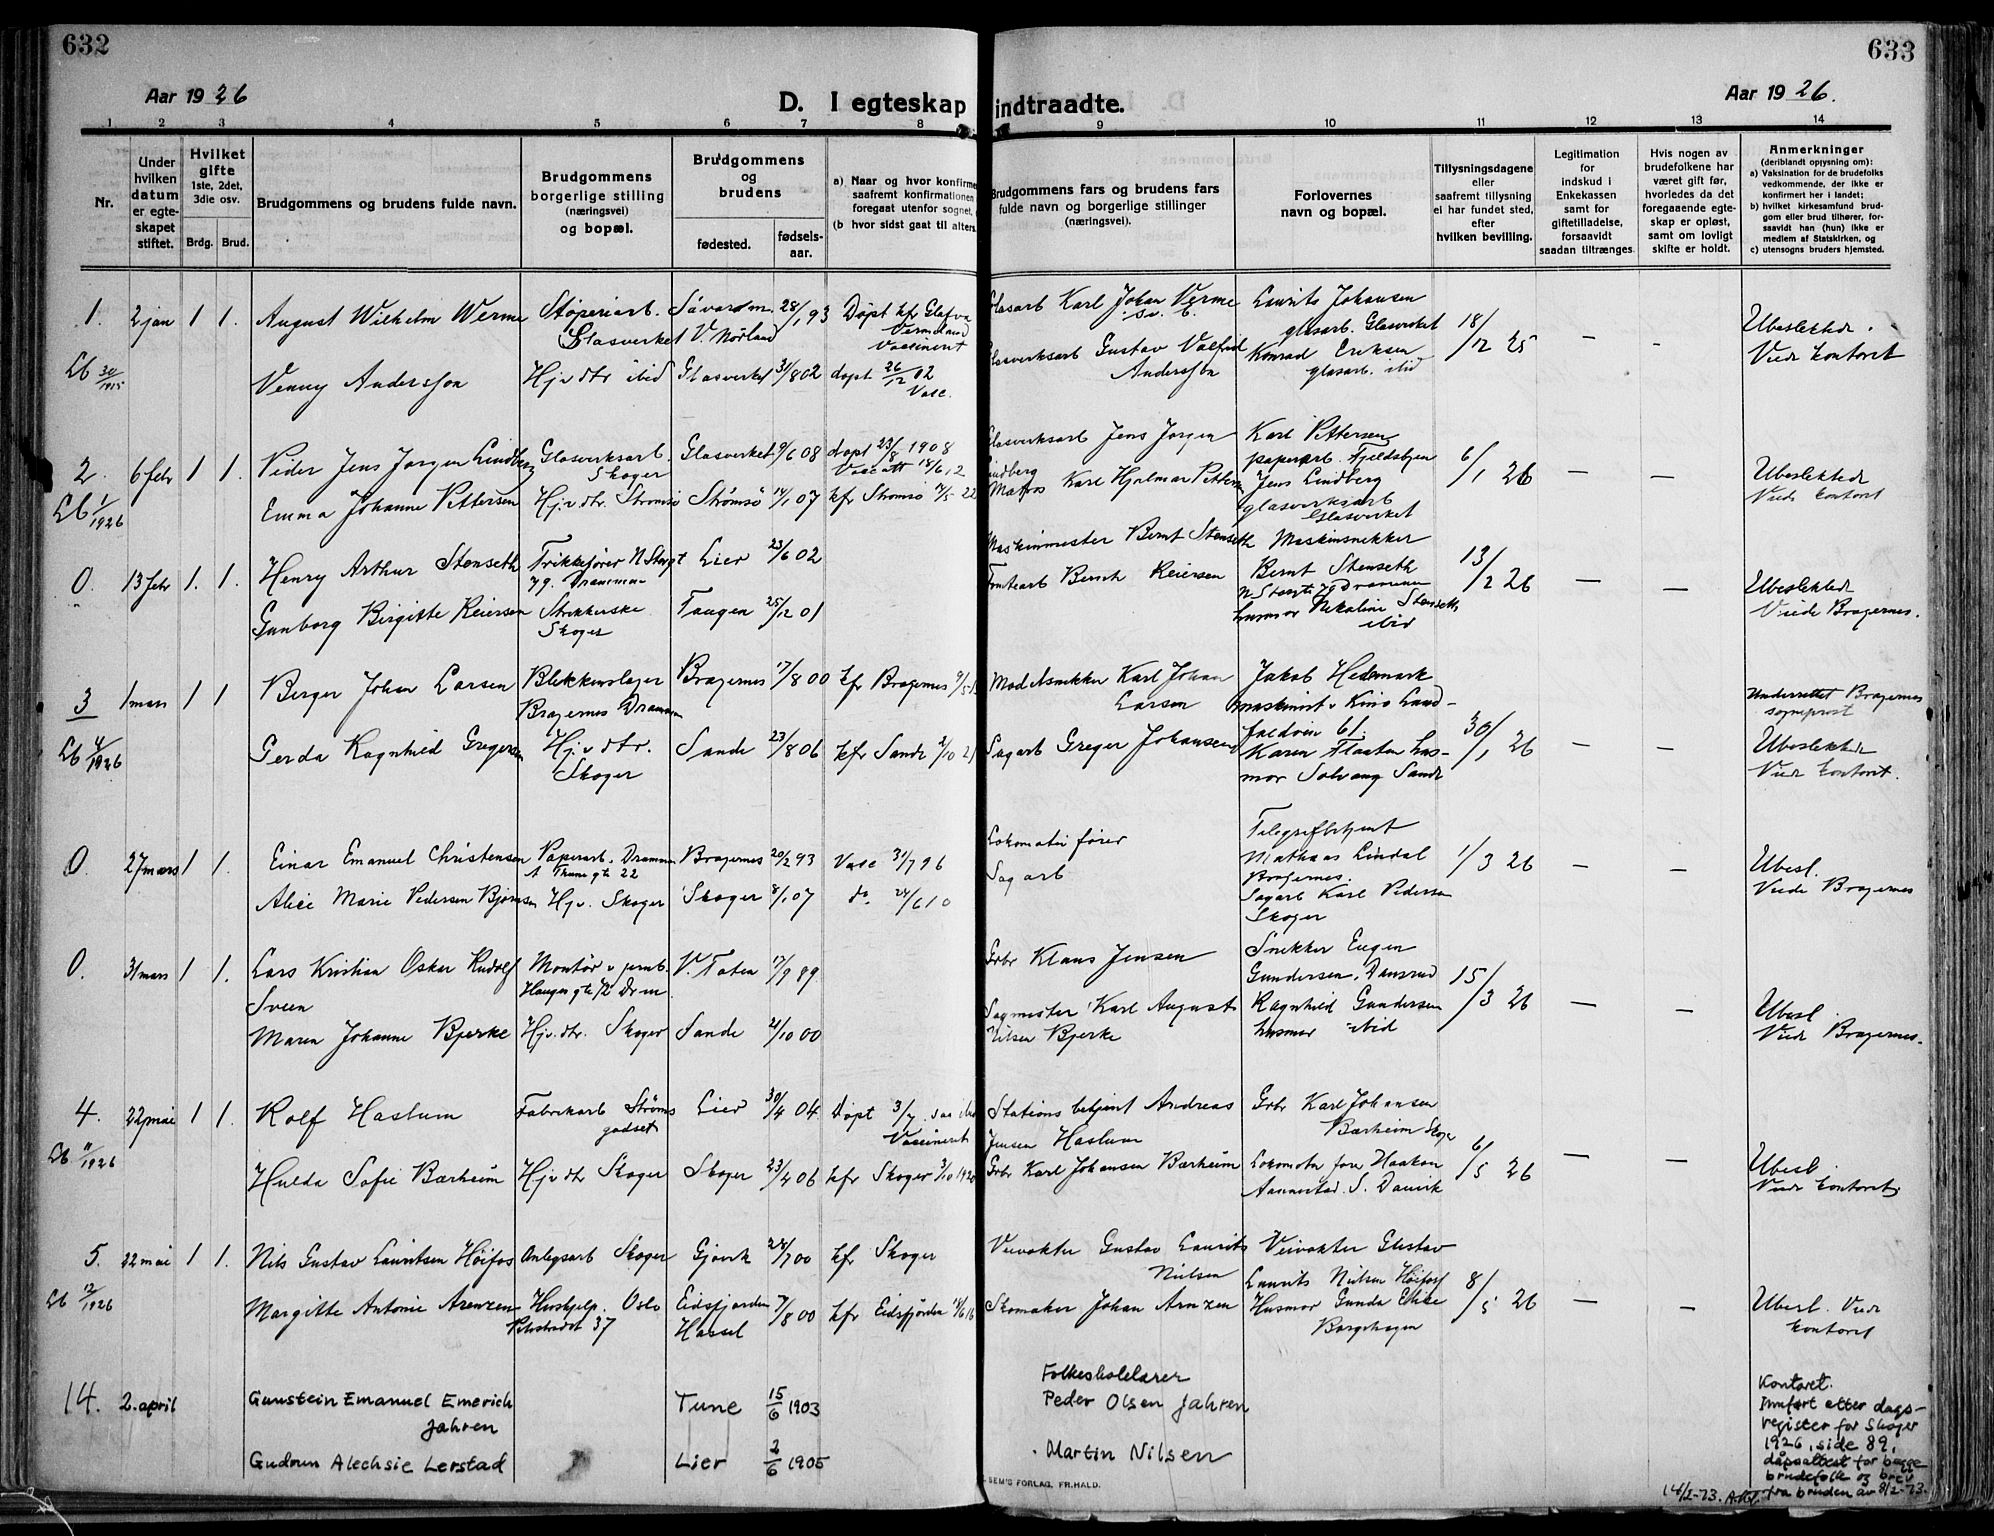 632
633
Aar 1926
D. I egteskap indtraadte.
Aar 1926.
1 2 3 4 5 6 7 8 9 10 11 12 13 14
Nr.
Under hvilken datum er egteskapet stiftet.
Hvilket gifte 1ste, 2det, 3die osv.
Brdg. Brud.
Brudgommens og brudens fulde navn.
Brudgommens borgerlige stilling (næringsvei) og bopæl.
Brudgommens og brudens
fødested.
fødsels-aar.
a) Naar og hvor konfirme
saafremt konfirmationen
foregaat utenfor sognet,
(b hvor sidst gaat til alters.
Brudgommens fars og brudens fars fulde navn og borgerlige stillinger (næringsvei).
Forlovernes navn og bopæl.
Tillysningsdagene eller saafremt tillysning ei har fundet sted, efter hvilken bevilling.
Legitimation for indskud i Enkekassen samt for giftetilladelse, forsaavidt saadan tiltrænges.
Hvis nogen av brudefolkene har været gift før, hvorledes da det foregaaende egteskap er opløst, samt om lovligt skifte er holdt.
Anmerkninger
(deriblandt oplysning om):
a) Vaksination for de brudefolks vedkommende, der ikke er konfirmert her i landet;
b) hvilket kirkesamfund brudgom eller brud tilhører, forsaavidt han (hun) ikke er medlem af Statskirken, og
c) utensogns bruders hjemsted.
1. 2 jan 1 1. August Wilhelm Werme Støperiarb. Glasverket V. Norland 28/1 93 Døpt kfr Glafva Vermland Vaccinert
Glasarb Karl Johan Verme Laurits Johansen glasarb. Glasverket 18/12 25 — - Ubeslektede. Viede kontoret
Venny Andersson Hj.v dtr ibid Glasverket 31/8 02 døpt 26/12 02 Vacc.
Glasverksarb Gustav Valfrid Andersson Konrad Eriksen glasarb. ibid
2. 6 febr 1 1. Peder Jens Jørgen Lindberg Glasverksarb. Skoger Glasverket 9/6 08 døpt 23/8 1908
Glasverksarb Jens Jørgen Lindberg Karl Pettersen paperarb. Fjeldsbyen 6/1 26 — — Ubeslektede Viede kontoret
Lb 1/1926
Emma Johanne Pettersen Hj.v dtr. Strømsø Strømsø 14/1 07 kfr Strømsø 22
Matros Karl Hjalmar Petters Jens Lindberg glasverksarb Glasverket
0. 13 febr 1. 1. Henry Arthur Stenseth Trikkefører N Storgt 79. Drammen Lier 23/6 02
Maskinmester Bernt Stenseth Maskinsnekker Bernt Stenseth 13/2 26 — — Ubeslektede Viede Bragernes.
Gunborg Birgitte Reiersen Strikkerske Skoger Tangen 25/12 01
Tomtearb Bernt Reiersen husmor Nikoline Stenseth ibid
3 1 mars 1 1 Birger Johan Larsen Blikkenslager Bragernes Drammen Bragernes 17/8 00 kfr Bragernes
Modelsnekker Karl Johan Larsen Jakob Hedemark maskinist v Kino Landfaldøien 61. 30/1 26 — — Underrettet Bragernes sogneprest
Lb 4/1926
Gerda Ragnhild Gregersen Hj.v dtr. Skoger Sande 23/8 06 kfr Sande 2/10 21
Sagarb Greger Johansen Karen Flaaten husmor Solvang Sande Ubeslektede Viede kontoret.
0. 27 mars 1 1. Einar Emanuel Christensen Paperarb. Drammen A Thunegte 22 Bragernes 20/2 93 Vacc 31/7 96
Lokomotivfører Telegrafbetjent Mathias Lindal Bragernes. 1/3 26 — — Ubesl. Viede Bragernes
Alice Marie Pedersen Bjørnsen Hj.v. Skoger Skoger 8/1 07 do. 24/6 10
Sagarb Sagarb Karl Pedersen Skoger
0. 31 mars 1 1. Lars Kristian Oskar Rudolf Sveen Montør v jernb. Haugesgte 72 Drm V. Toten 17/9 89
Grbr Klaus Jensen Snekker Eugen Gundersen, Dansrud 15/3 26 — — Ubesl. Viede Bragernes.
Maren Johanne Bjerke Hj.v.dtr. Skoger Sande 21/10 00
Sagmester Karl August Nilsen Bjerke Ragnhild Gundersen husmor ibid
4. 22 mai 1 1. Rolf Haslum Fabrikarb Strømsgodset Lier 30/4 04 Døpt 3/7. Vaccinert
Stationsbetjent Andreas Jensen Haslum Grbr Karl Johansen Bærheim Skoger 6/5 26 — — Ubesl. Viede kontoret.
Lb 11/1926
Hulda Sofie Bærheim Hj.v dtr Skoger Skoger 23/4 06 kfr Skoger 3/10 1920
Grbr Karl Johansen Bærheim Lokomotivfører Haakon Aannestad. S. Danvik
5. 22 mai 1 1. Nils Gustav Lauritsen Høifos Anlegsarb Skoger Gjøvik 28/7 00 kfr Skoger
Veivokter Gustav Laurits Nielsen Veivokter Gustav Laurits Nielsen Høifoss 8/5 26 — — Ubesl. Viede kontoret
Lb 12/1926
Margitte Antonie Arenzen Hushjelp. Oslo Pilestrædet 37 Eidsfjorden Hassel 7/8 00 kfr Eidsfjorden 18/6 16
Skomaker Johan Arnzen Husmor Gunda Elise Borgehagen
14. 2. april Gunstein Emanuel Emerich Jahren Tune 15/6 1903
Folkeskolelærer Peder Olsen Jahren
Gudrun Alechsie Lerstad Lier 2/6 1905
Martin Nilsen
Kontoret.
Innført etter dags-
register for Skoger
1926, side 89,
dåpsattest for begge
brudefolk og brev
fra bruden av 8/2-73.
14/2-73.
SEM'S FORLAG, FR.HALD.